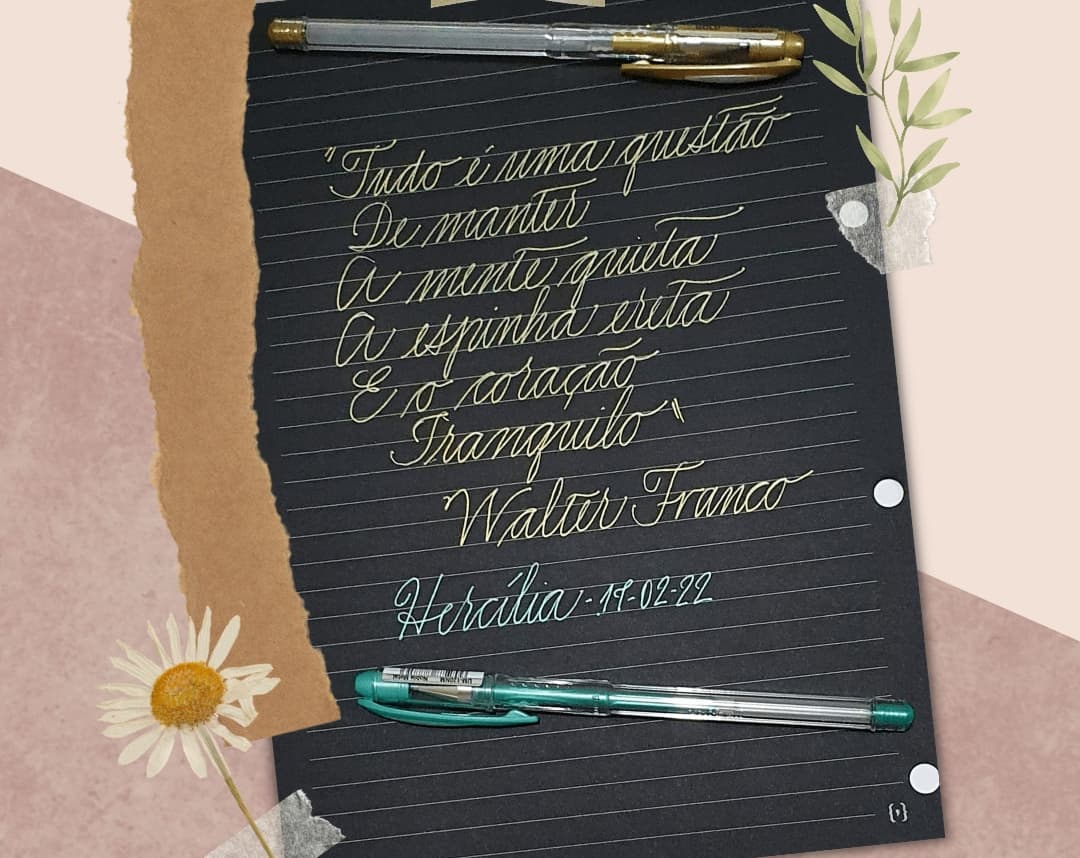 "Tudo é uma questão
De manter
A mente quieta
A espinha ereta
E o coração
Tranquilo"
Walter Franco
Hercília - 17-02-22